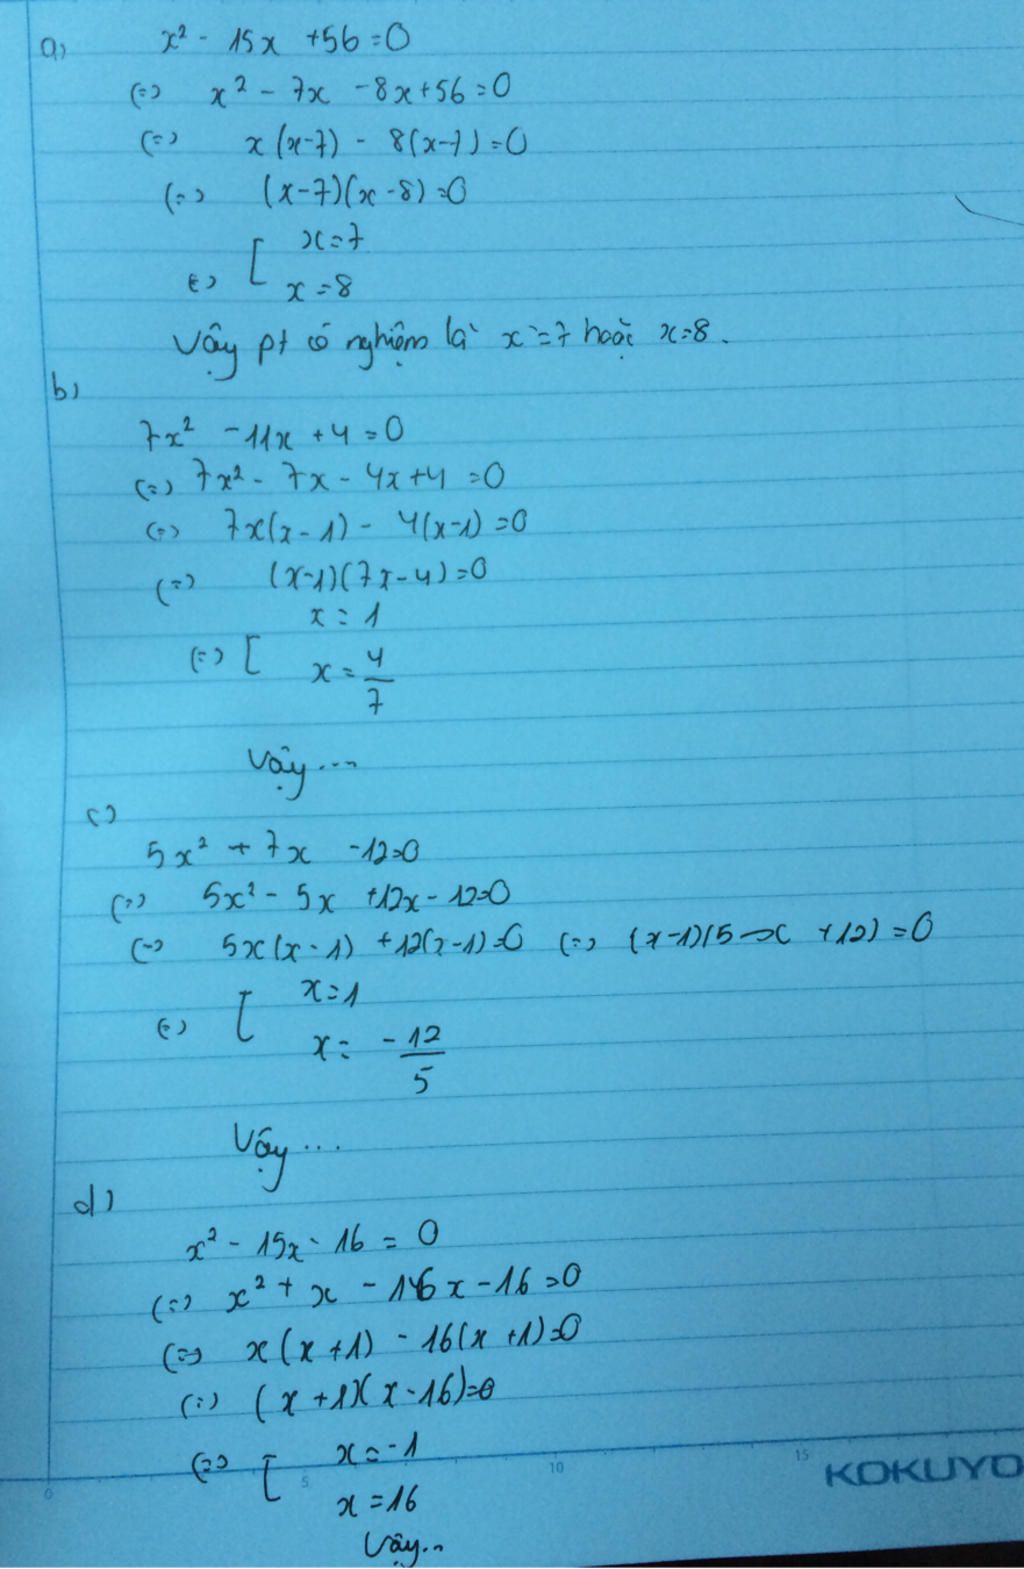 a) x² - 15x + 56 = 0
(=) x² - 7x - 8x + 56 = 0
(=) x(x-7) - 8(x-7) = 0
(=) (x-7)(x-8) = 0
(=) [ x = 7
x = 8
Vậy pt có nghiệm là x = 7 hoặc x = 8.
b)
7x² - 11x + 4 = 0
(=) 7x² - 7x - 4x + 4 = 0
(=) 7x(x-1) - 4(x-1) = 0
(=) (x-1)(7x-4) = 0
x = 1
(=) [ x = 4/7
Vậy ...
c)
5x² + 7x - 12 = 0
(=) 5x² - 5x + 12x - 12 = 0
(=) 5x(x-1) + 12(x-1) = 0 (=) (x-1)(5x + 12) = 0
(=) [ x = 1
x = -12/5
Vậy ...
d)
x² - 15x - 16 = 0
(=) x² + x - 16x - 16 = 0
(=) x(x+1) - 16(x+1) = 0
(=) (x+1)(x-16) = 0
(=) [ x = -1
x = 16
Vậy..
0 5 10 15
KOKUYO